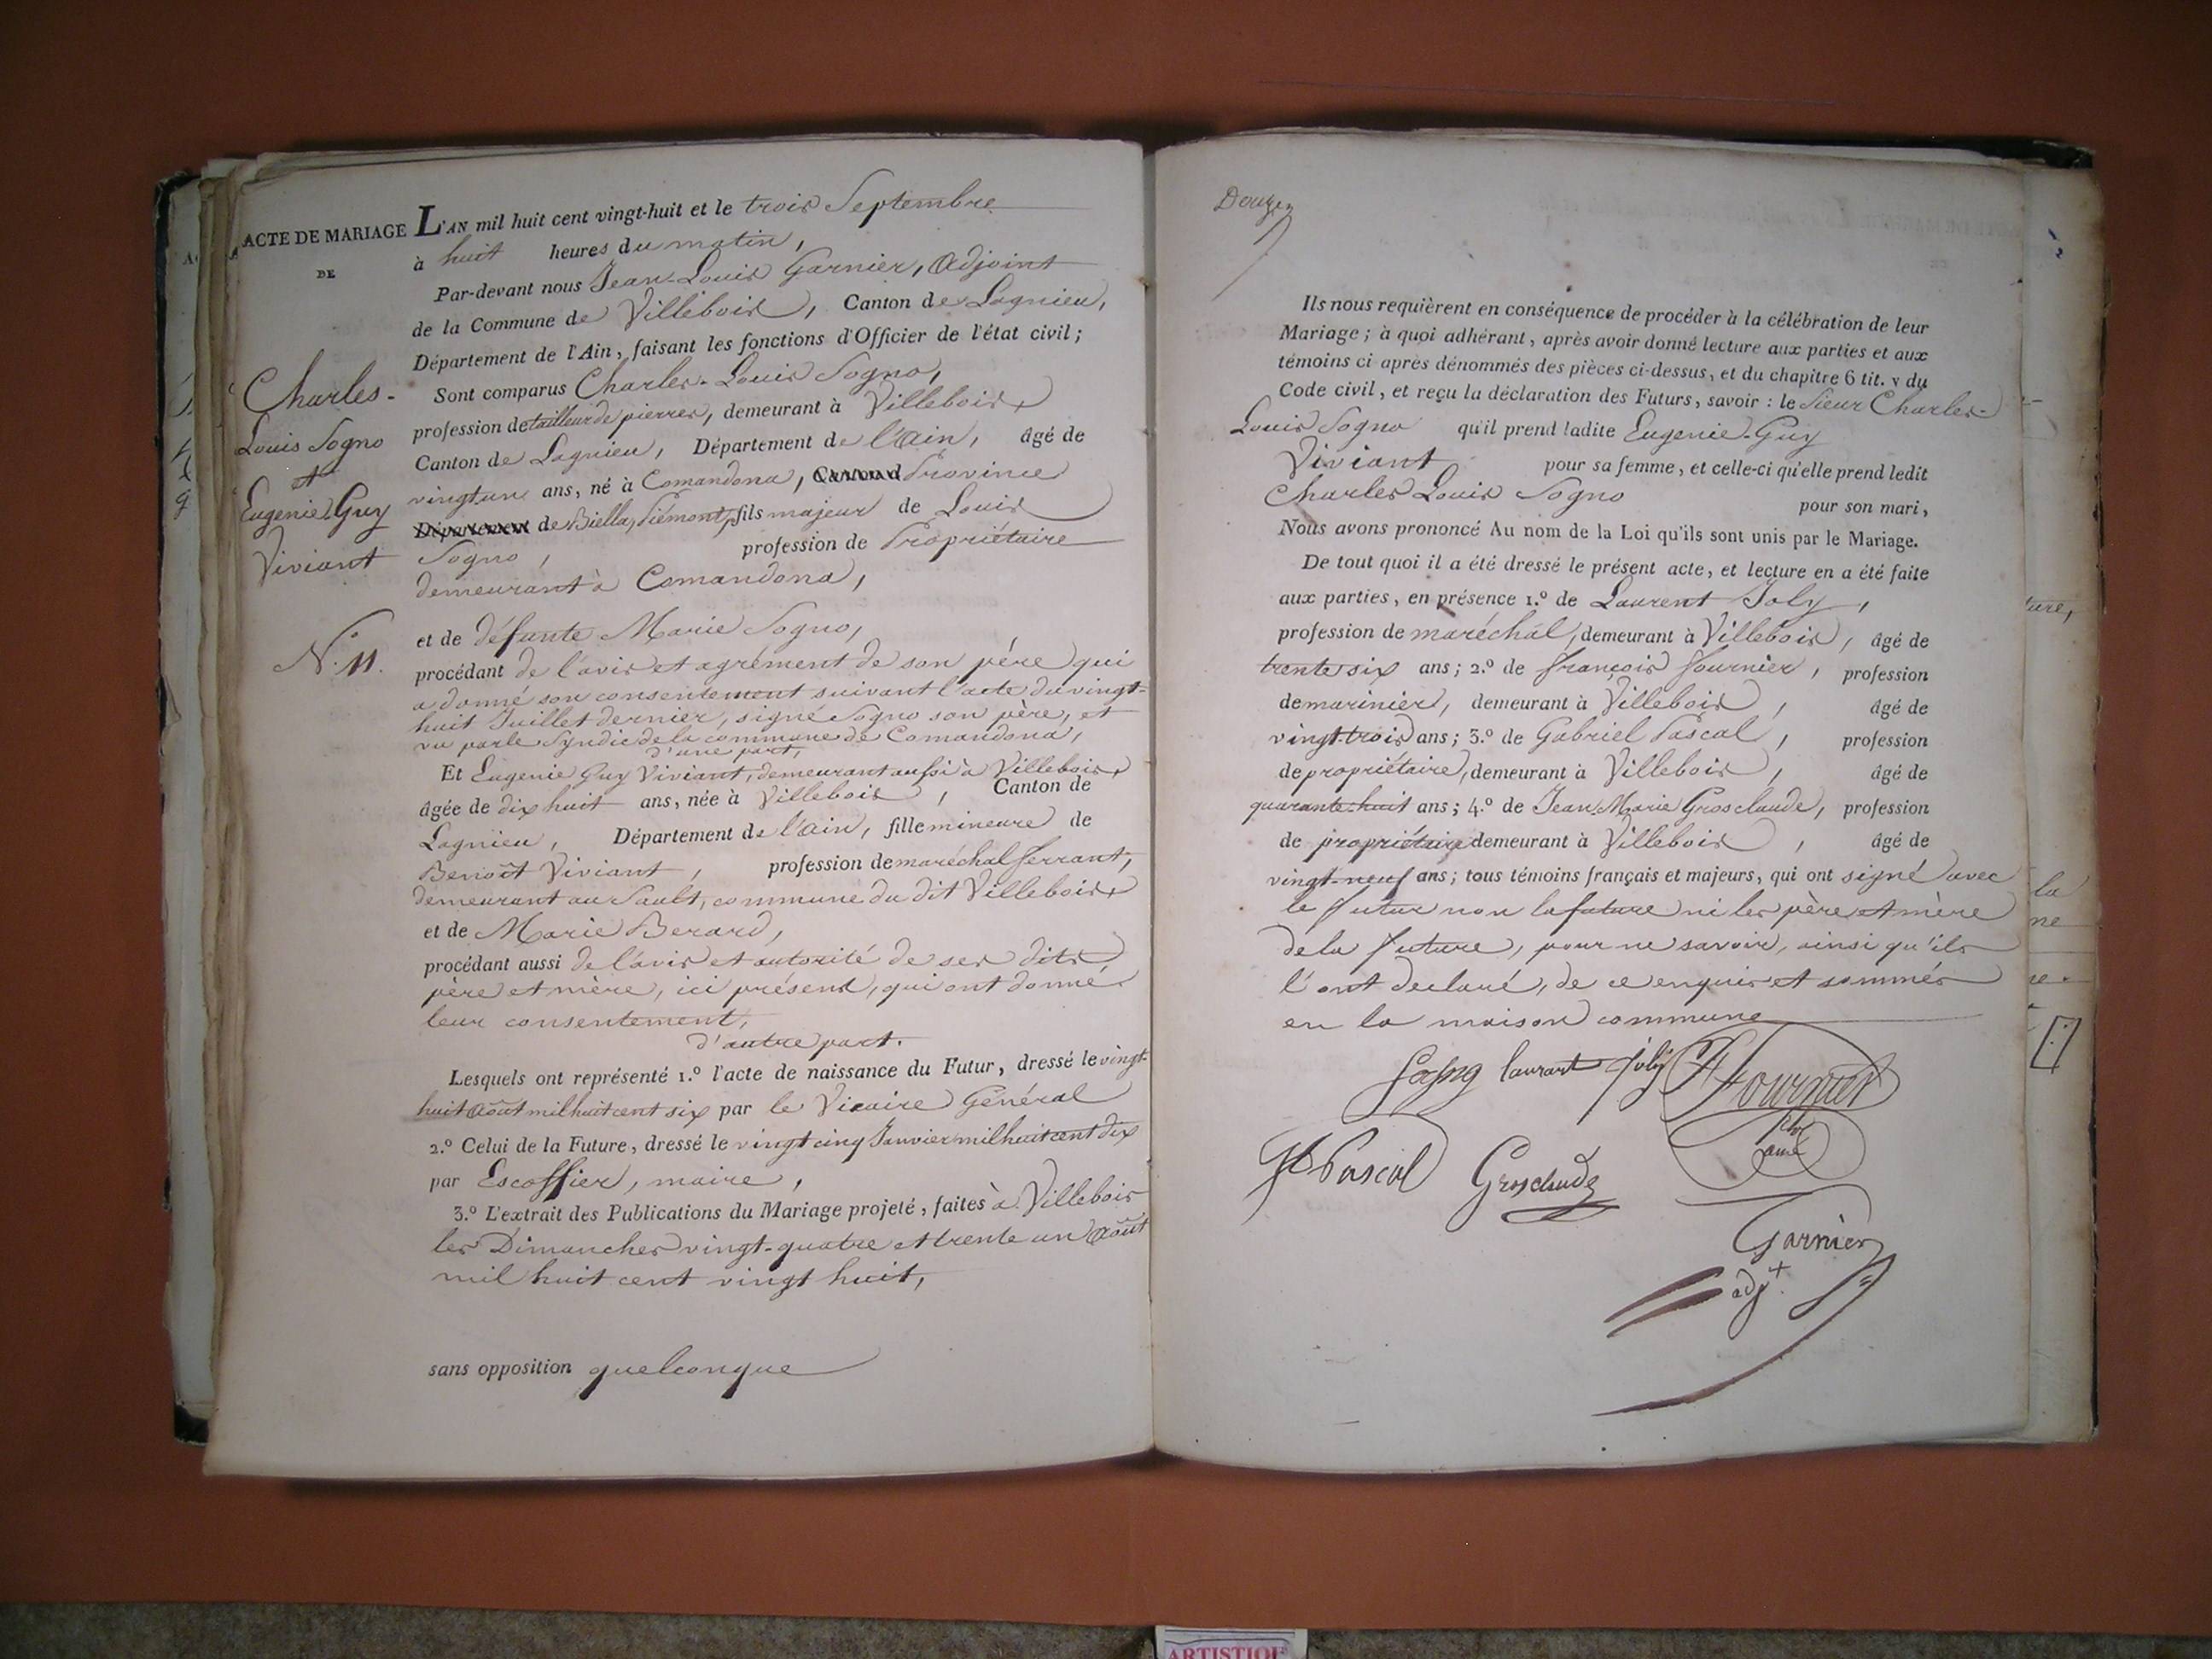 ACTE DE MARIAGE
DE
Charles-
Louis Sogno
et
Eugenie Guy
Viviant
N.° 11.
L'AN mil huit cent vingt-huit et le trois Septembre
à huit heures du matin,
Par-devant nous Jean-Louis Garnier, Adjoint
de la Commune de Villebois, Canton de Lagnieu,
Département de l'Ain, faisant les fonctions d'Officier de l'état civil;
Sont comparus Charles-Louis Sogno,
profession de tailleur de pierres, demeurant à Villebois,
Canton de Lagnieu, Département de l'Ain, âgé de
vingt un ans, né à Comandona, Canton d Province
Département de Biella, Piémont, fils majeur de Louis
Sogno, profession de Propriétaire
demeurant à Comandona,
et de défunte Marie Sogno,
procédant de l'avis et agrément de son père qui
a donné son consentement suivant l'acte du vingt=
huit Juillet dernier, signé Sogno son père, et
vu par le Syndic de la commune de Comandona,
d'une part,
Et Eugenie Guy Viviant, demeurant aussi à Villebois,
âgée de dix huit ans, née à Villebois, Canton de
Lagnieu, Département de l'Ain, fille mineure de
Benoît Viviant, profession de maréchal ferrant,
demeurant au Sault, commune du dit Villebois,
et de Marie Berard,
procédant aussi de l'avis et autorité de ses dits
père et mère, ici présent, qui ont donné
leur consentement,
d'autre part.
Lesquels ont représenté 1.° l'acte de naissance du Futur, dressé le vingt-
huit Août mil huit cent six par le Vicaire Général
2.° Celui de la Future, dressé le vingt cinq Janvier mil huit cent dix
par Escoffier, maire,
3.° L'extrait des Publications du Mariage projeté, faites à Villebois
les Dimanches vingt-quatre et trente un Août
mil huit cent vingt huit,
sans opposition quelconque
Ils nous requièrent en conséquence de procéder à la célébration de leur
Mariage; à quoi adhérant, après avoir donné lecture aux parties et aux
témoins ci après dénommés des pièces ci-dessus, et du chapitre 6 tit. v du
Code civil, et reçu la déclaration des Futurs, savoir: le Sieur Charles-
Louis Sogno qu'il prend ladite Eugenie-Guy
Viviant pour sa femme, et celle-ci qu'elle prend ledit
Charles Louis Sogno pour son mari,
Nous avons prononcé Au nom de la Loi qu'ils sont unis par le Mariage.
De tout quoi il a été dressé le présent acte, et lecture en a été faite
aux parties, en présence 1.° de Laurent Joly,
profession de maréchal, demeurant à Villebois, âgé de
trente six ans; 2.° de françois fournier, profession
de marinier, demeurant à Villebois, âgé de
vingt-trois ans; 3.° de Gabriel Pascal, profession
de propriétaire, demeurant à Villebois, âgé de
quarante-huit ans; 4.° de Jean Marie Grosclaude, profession
de propriétaire demeurant à Villebois, âgé de
vingt-neuf ans; tous témoins français et majeurs, qui ont signé avec
le futur non la future ni les père et mère
de la future, pour ne savoir, ainsi qu'ils
l'ont declaré, de ce enquis et sommés
en la maison commune
laurant joly
Fournier
Pascal
Grosclaude
Garnier
adjt
ture,
la
ne
ARTISTIQUE